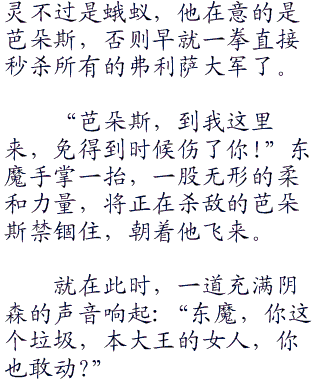 灵不过是蛾蚁，他在意的是
芭朵斯，否则早就一拳直接
秒杀所有的弗利萨大军了。
“芭朵斯，到我这里
来，免得到时候伤了你!”东
魔手掌一抬，一股无形的柔
和力量，将正在杀敌的芭朵
斯禁锢住，朝着他飞来。
就在此时，一道充满阴
森的声音响起:“东魔，你这
个垃圾，本大王的女人，你
也敢动?”